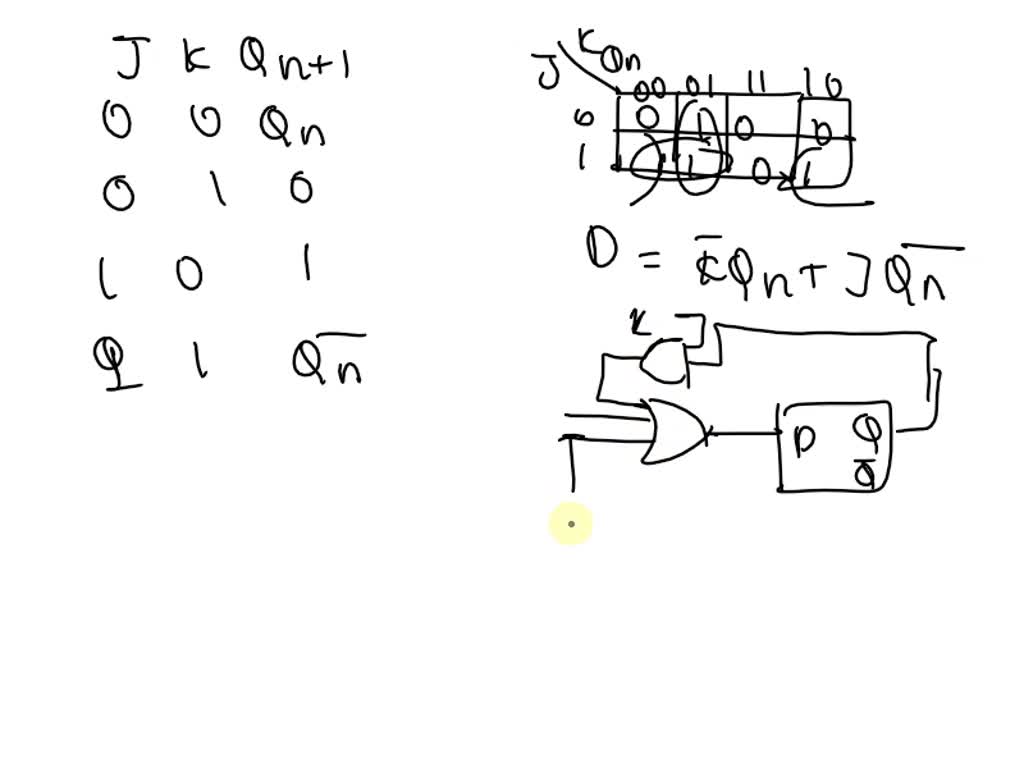 J K Qn+1
0 0 Qn
0 1 0
1 0 1
1 Q̅n
K Qn
J
00 01 11 10
0 0 1 0 0
1 1 1 0 1
D = K̅Qn + JQ̅n
K
D Q
Q̅